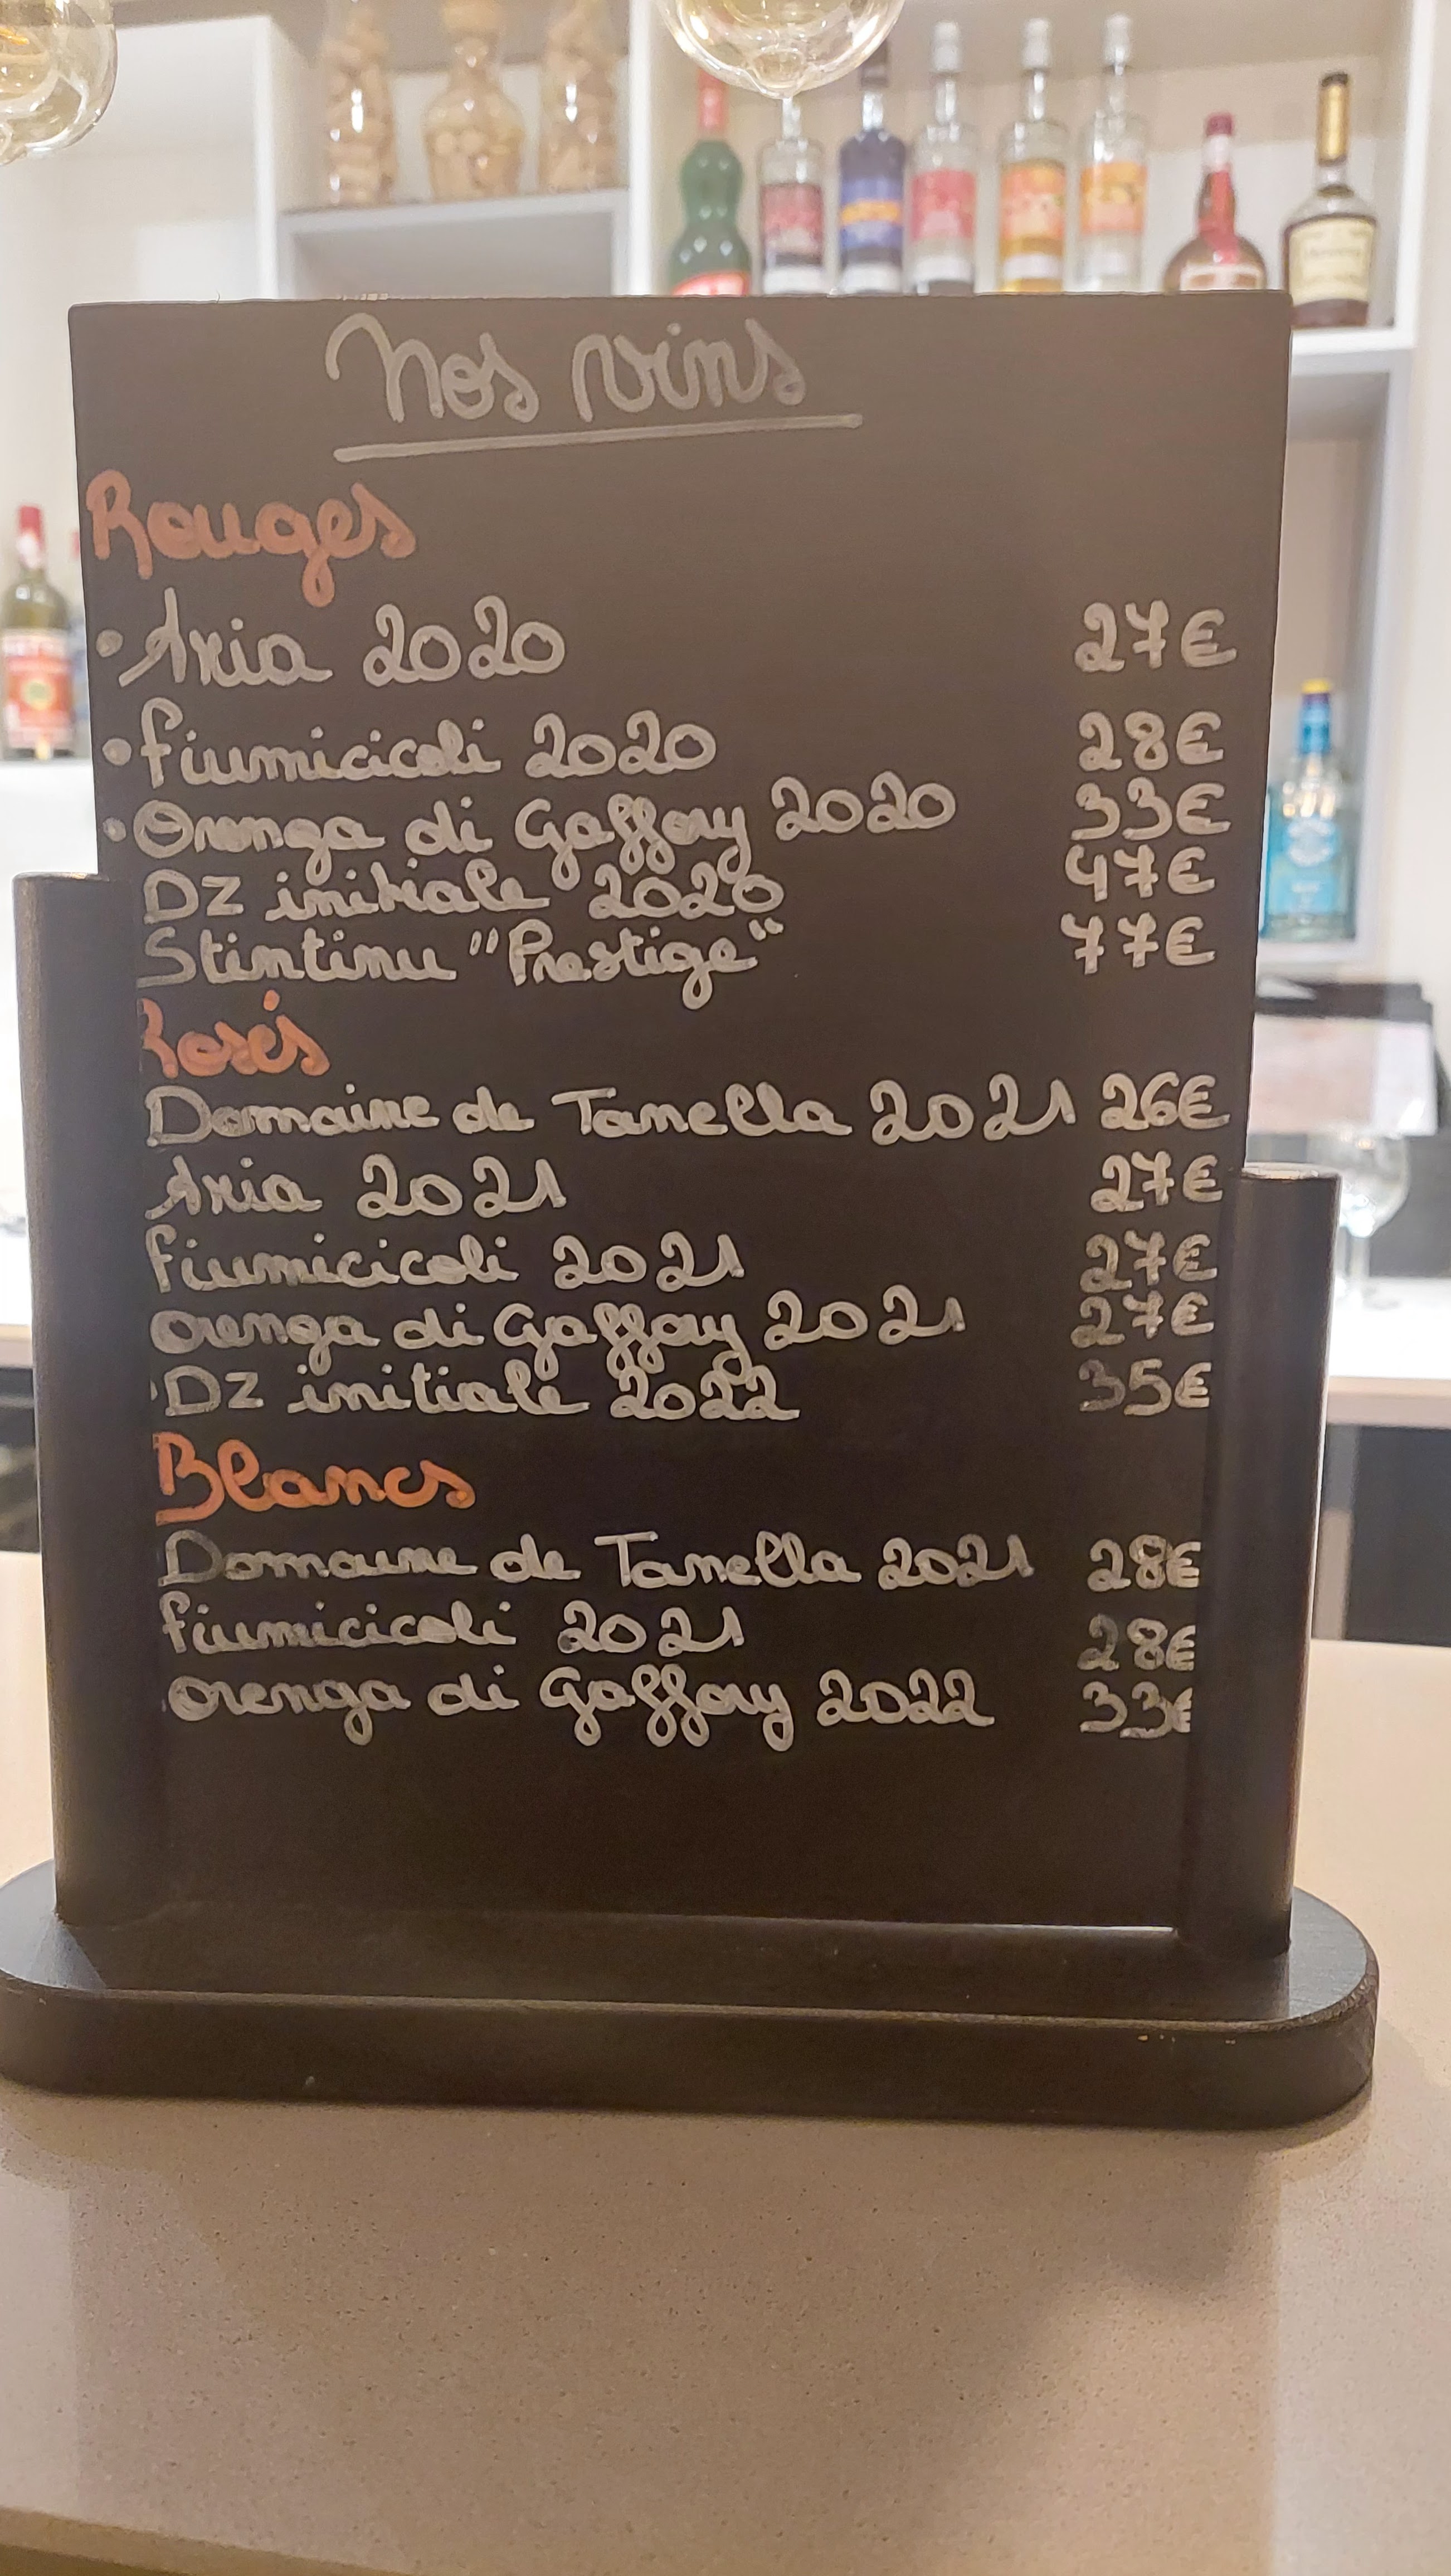 Nos vins
Rouges
• Aria 2020 27€
• Fiumicicoli 2020 28€
• Orenga di Gaffory 2020 33€
DZ initiale 2020 47€
Stintinu "Prestige" 77€
Rosés
Domaine de Tanella 2021 26€
Aria 2021 27€
Fiumicicoli 2021 27€
Orenga di Gaffory 2021 27€
DZ initiale 2022 35€
Blancs
Domaine de Tanella 2021 28€
Fiumicicoli 2021 28€
Orenga di Gaffory 2022 33€